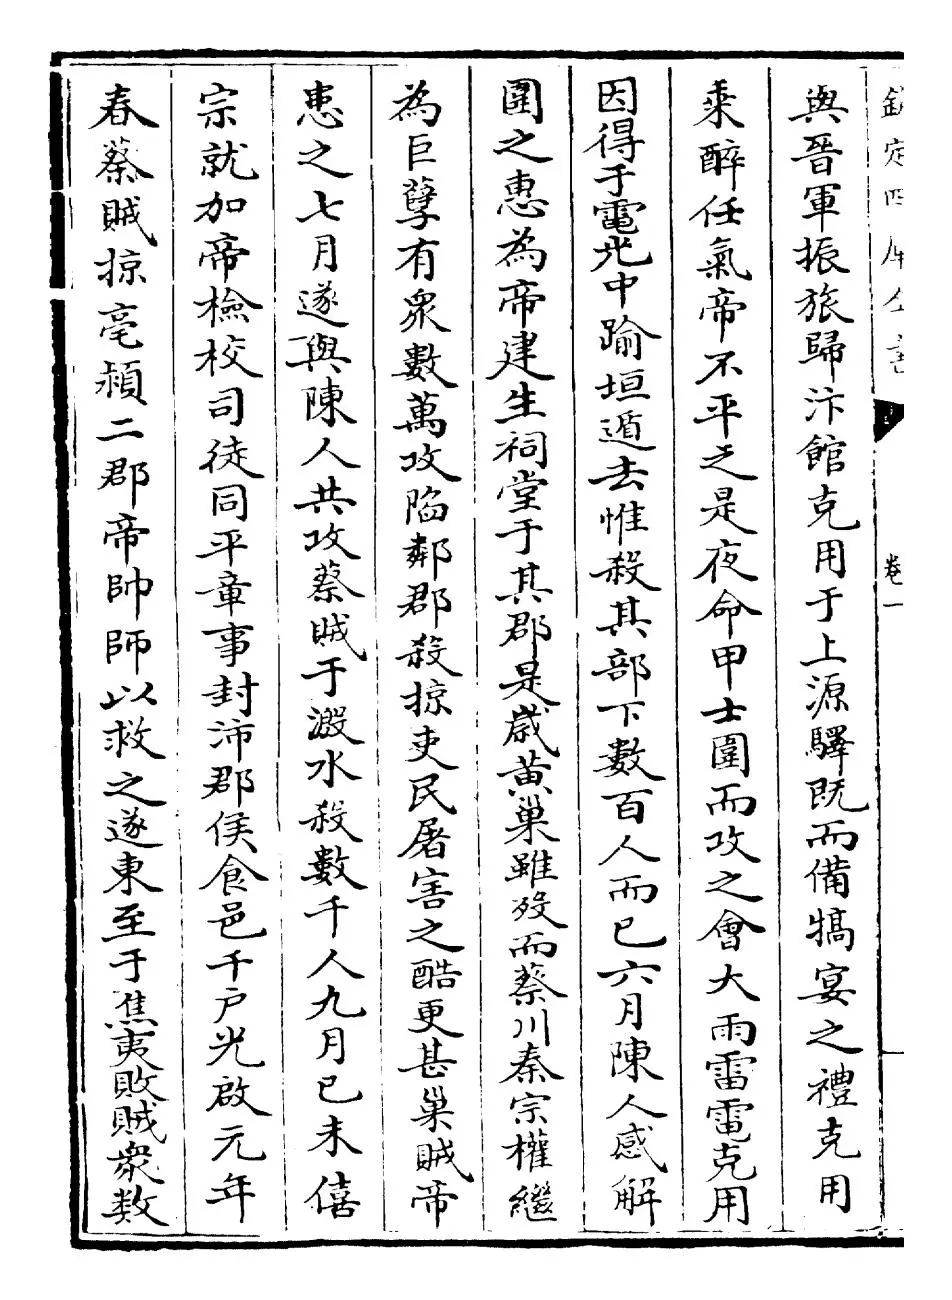 欽定四庫全書
卷一
與晉軍振旅歸汴館克用于上源驛既而備犒宴之禮克用
乘醉任氣帝不平之是夜命甲士圍而攻之會大雨雷電克用
因得于電光中踰垣遁去惟殺其部下數百人而已六月陳人感解
圍之惠為帝建生祠堂于其郡是歲黃巢雖歿而蔡川秦宗權繼
為巨孽有衆數萬攻陷鄰郡殺掠吏民屠害之酷更甚巢賊帝
患之七月遂與陳人共攻蔡賊于溵水殺數千人九月已未僖
宗就加帝檢校司徒同平章事封沛郡侯食邑千户光啟元年
春蔡賊掠亳潁二郡帝帥師以救之遂東至于焦夷敗賊衆数